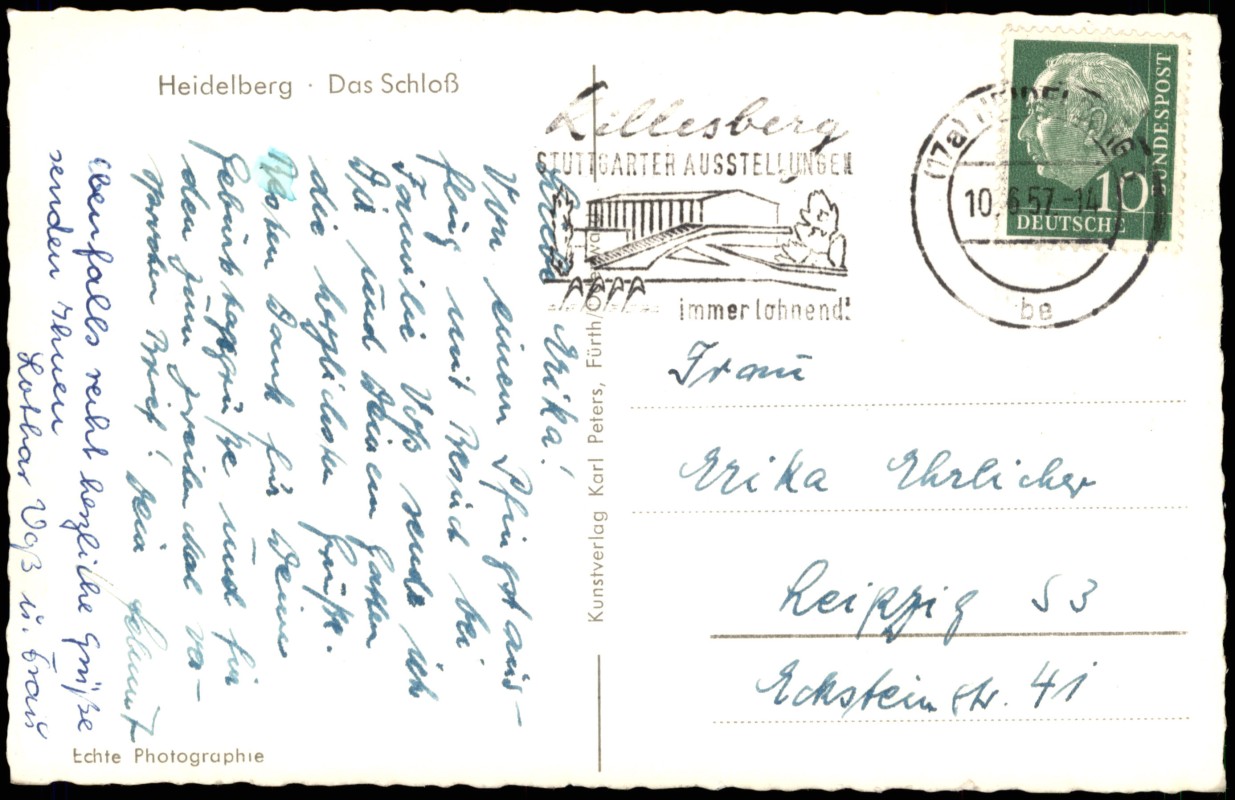 Heidelberg · Das Schloß
Killesberg
STUTTGARTER AUSSTELLUNGEN
immer lohnend!
(17a) HEIDELBERG
10.6.57-14
be
10
DEUTSCHE
BUNDESPOST
Liebe Erika!
Von einem Pfingstaus-
flug mit Besuch bei
Familie Voß sende ich
Dir und Deinem Gatten
die herzlichsten Grüße.
Besten Dank für Deine
Geburtstagsgrüße und für
den zum zweiten Mal ver-
sprochenen Brief! Dein Helmut
Ebenfalls recht herzliche Grüße
senden Ihnen
Lothar Voß u. Frau
Kunstverlag Karl Peters, Fürth/Odenwald
Frau
Erika Ehrlicher
Leipzig S 3
Ecksteinstr. 41
Echte Photographie